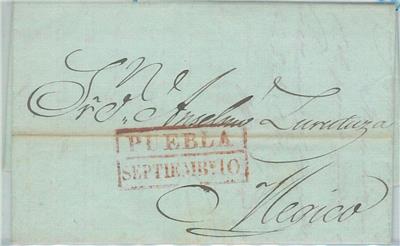 Sr. Dn. Anselmo Zurutuza
PUEBLA
SEPTIEMB. 10
Megico